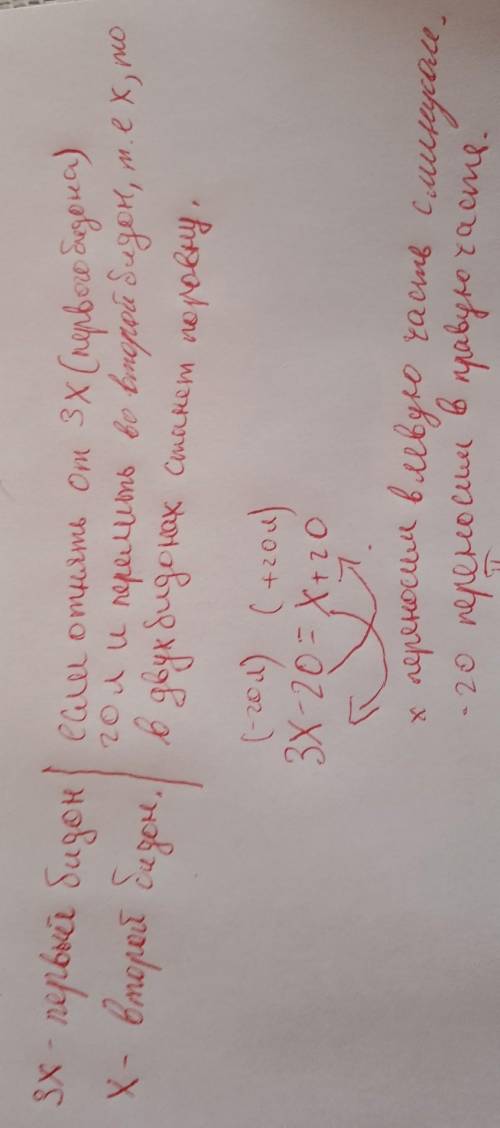 3х - первый бидон
х - второй бидон.
если отнять от 3х (первого бидона)
20 л и перелить во второй бидон, т.е х, то
в двух бидонах станет поровну.
(-20л) (+20л)
3х-20=х+20
х переносим в левую часть с минусом.
-20 переносим в правую часть.